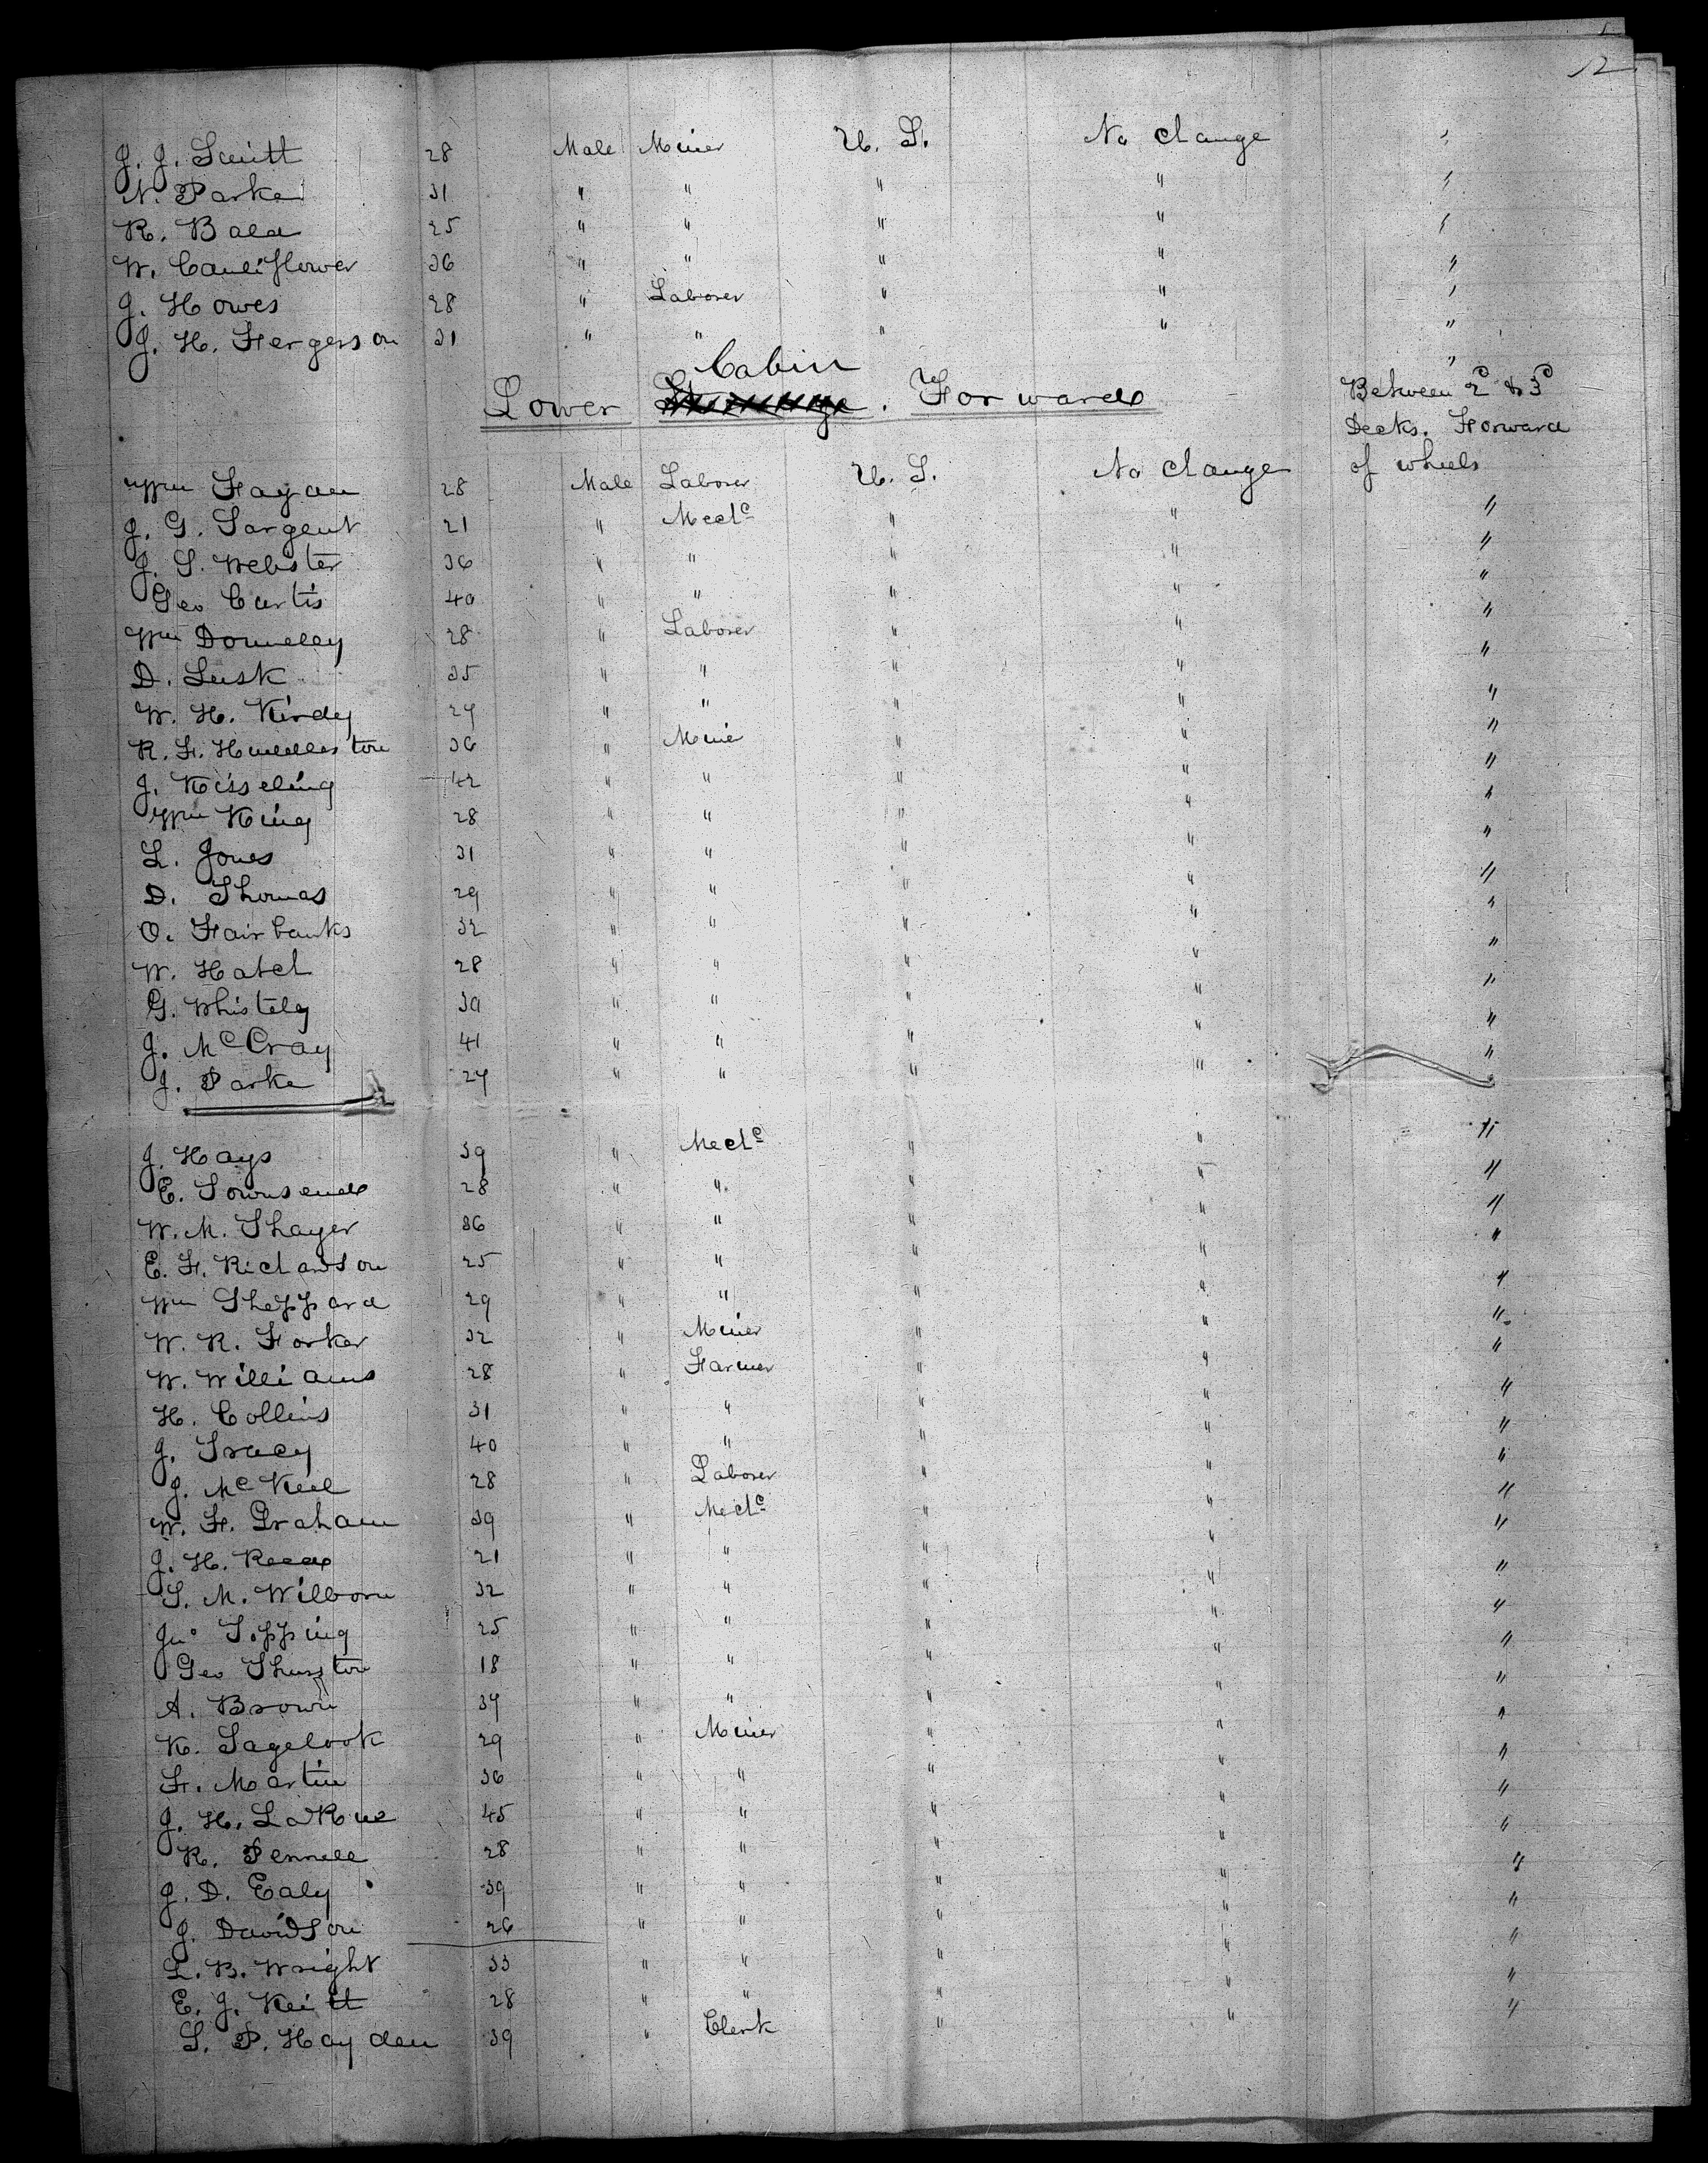 12
J. J. Smith 28 Male Miner U. S. No change "
N. Parke 31 " " " " "
R. Bala 25 " " " " "
W. Cauliflower 36 " " " " "
J. Howes 28 " Laborer " " "
J. H. Fergerson 31 " " " " "
Cabin "
Lower Steerage. Forward
Between 2d & 3d
Decks. Forward
of wheels
Wm Fagan 28 Male Laborer U. S. No change
J. G. Sargent 21 " Mechc " " "
J. S. Webster 36 " " " " "
Geo Curtis 40 " " " " "
Wm Donnelly 28 " Laborer " " "
D. Lusk 35 " " " " "
W. H. Kirdy 27 " " " " "
R. F. Huddleston 36 " Miner " " "
J. Kisseling 42 " " " " "
Wm King 28 " " " " "
L. Jones 31 " " " " "
D. Thomas 29 " " " " "
O. Fairbanks 32 " " " " "
W. Hatch 28 " " " " "
G. Whistely 30 " " " " "
J. McCray 41 " " " " "
J. Parke 27 " " " " "
J. Hays 39 " Mechc " " "
E. Townsend 28 " " " " "
W. M. Thayer 36 " " " " "
E. F. Richardson 25 " " " " "
Wm Sheppard 29 " " " " "
W. R. Forker 32 " Miner " " "
W. Williams 28 " Farmer " " "
H. Collins 31 " " " " "
J. Tracy 40 " " " " "
J. McKeel 28 " Laborer " " "
W. F. Graham 39 " Mechc " " "
J. H. Reed 21 " " " " "
S. M. Wilborn 32 " " " " "
Jno Topping 25 " " " " "
Geo Thurston 18 " " " " "
A. Brown 37 " " " " "
K. Sagelook 29 " Miner " " "
F. Martin 36 " " " " "
J. H. LaRue 45 " " " " "
R. Pennell 28 " " " " "
J. D. Ealy 39 " " " " "
J. Davidson 26 " " " " "
L. B. Wright 33 " " " " "
E. J. Keith 28 " " " " "
S. P. Hayden 39 " Clerk " " "